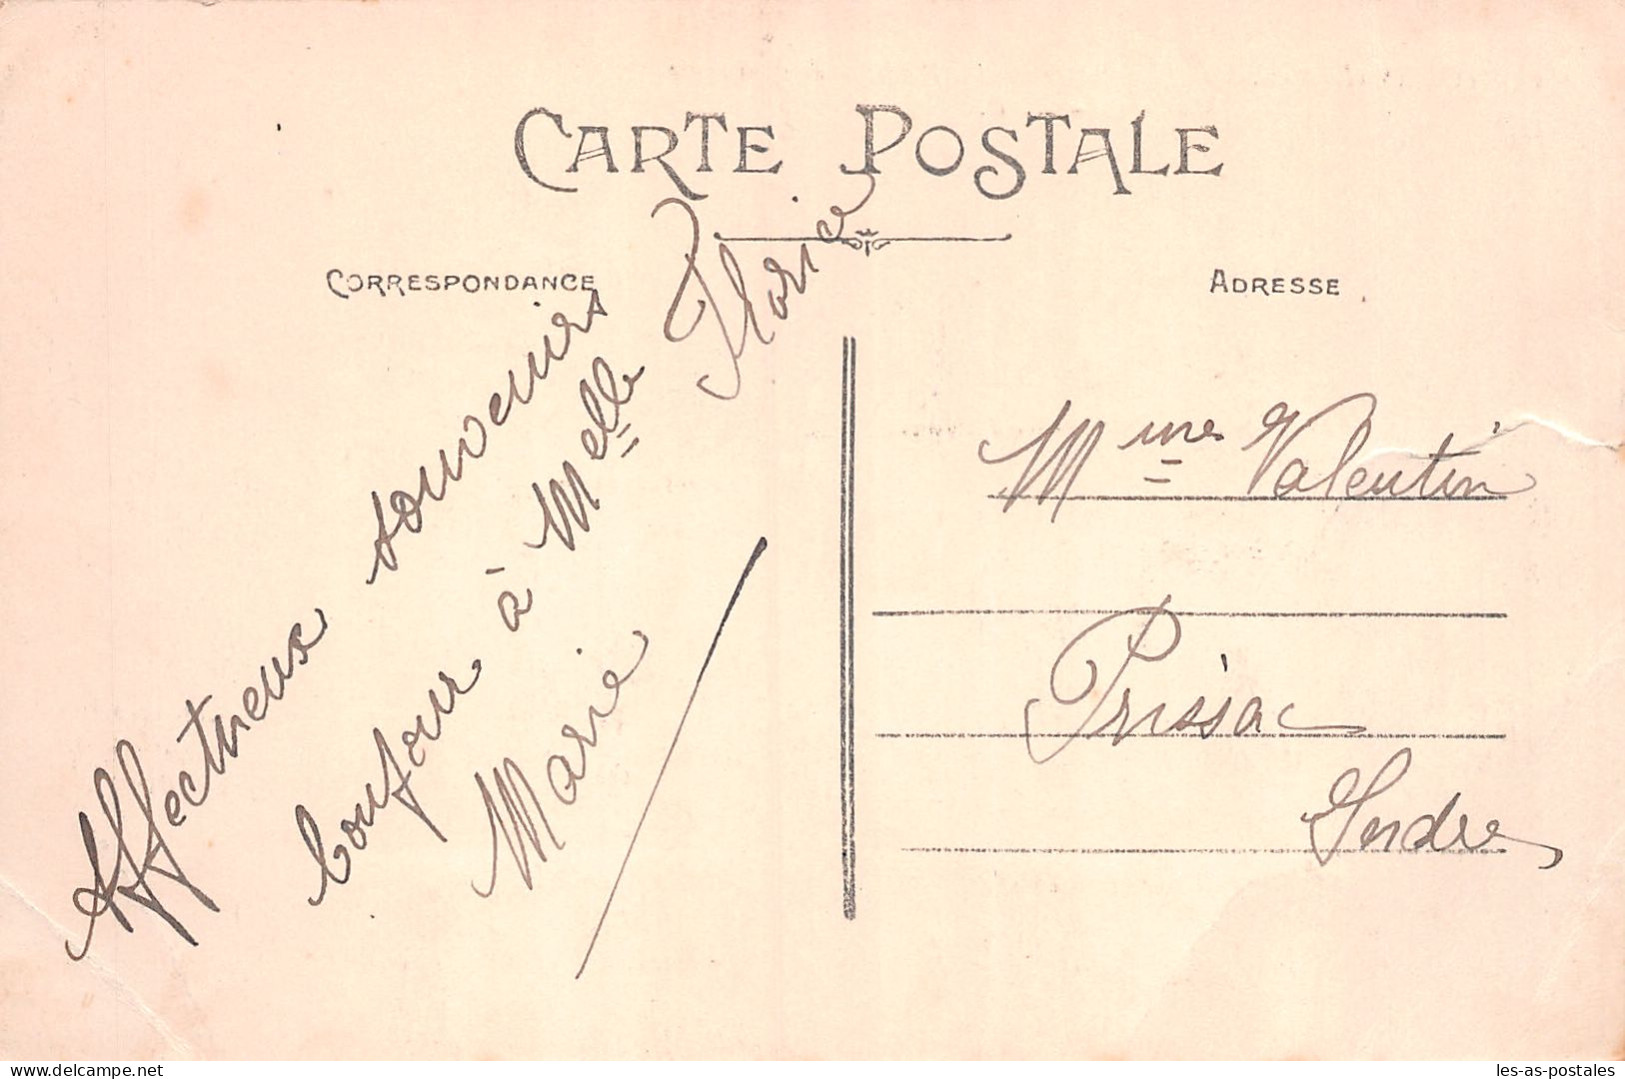 CARTE POSTALE
CORRESPONDANCE
ADRESSE
Affectueux souvenirs
bonjour à Melle Florice
Marie
Mme Valentin
Prissac
Indre
delcampe.net
les-as-postales